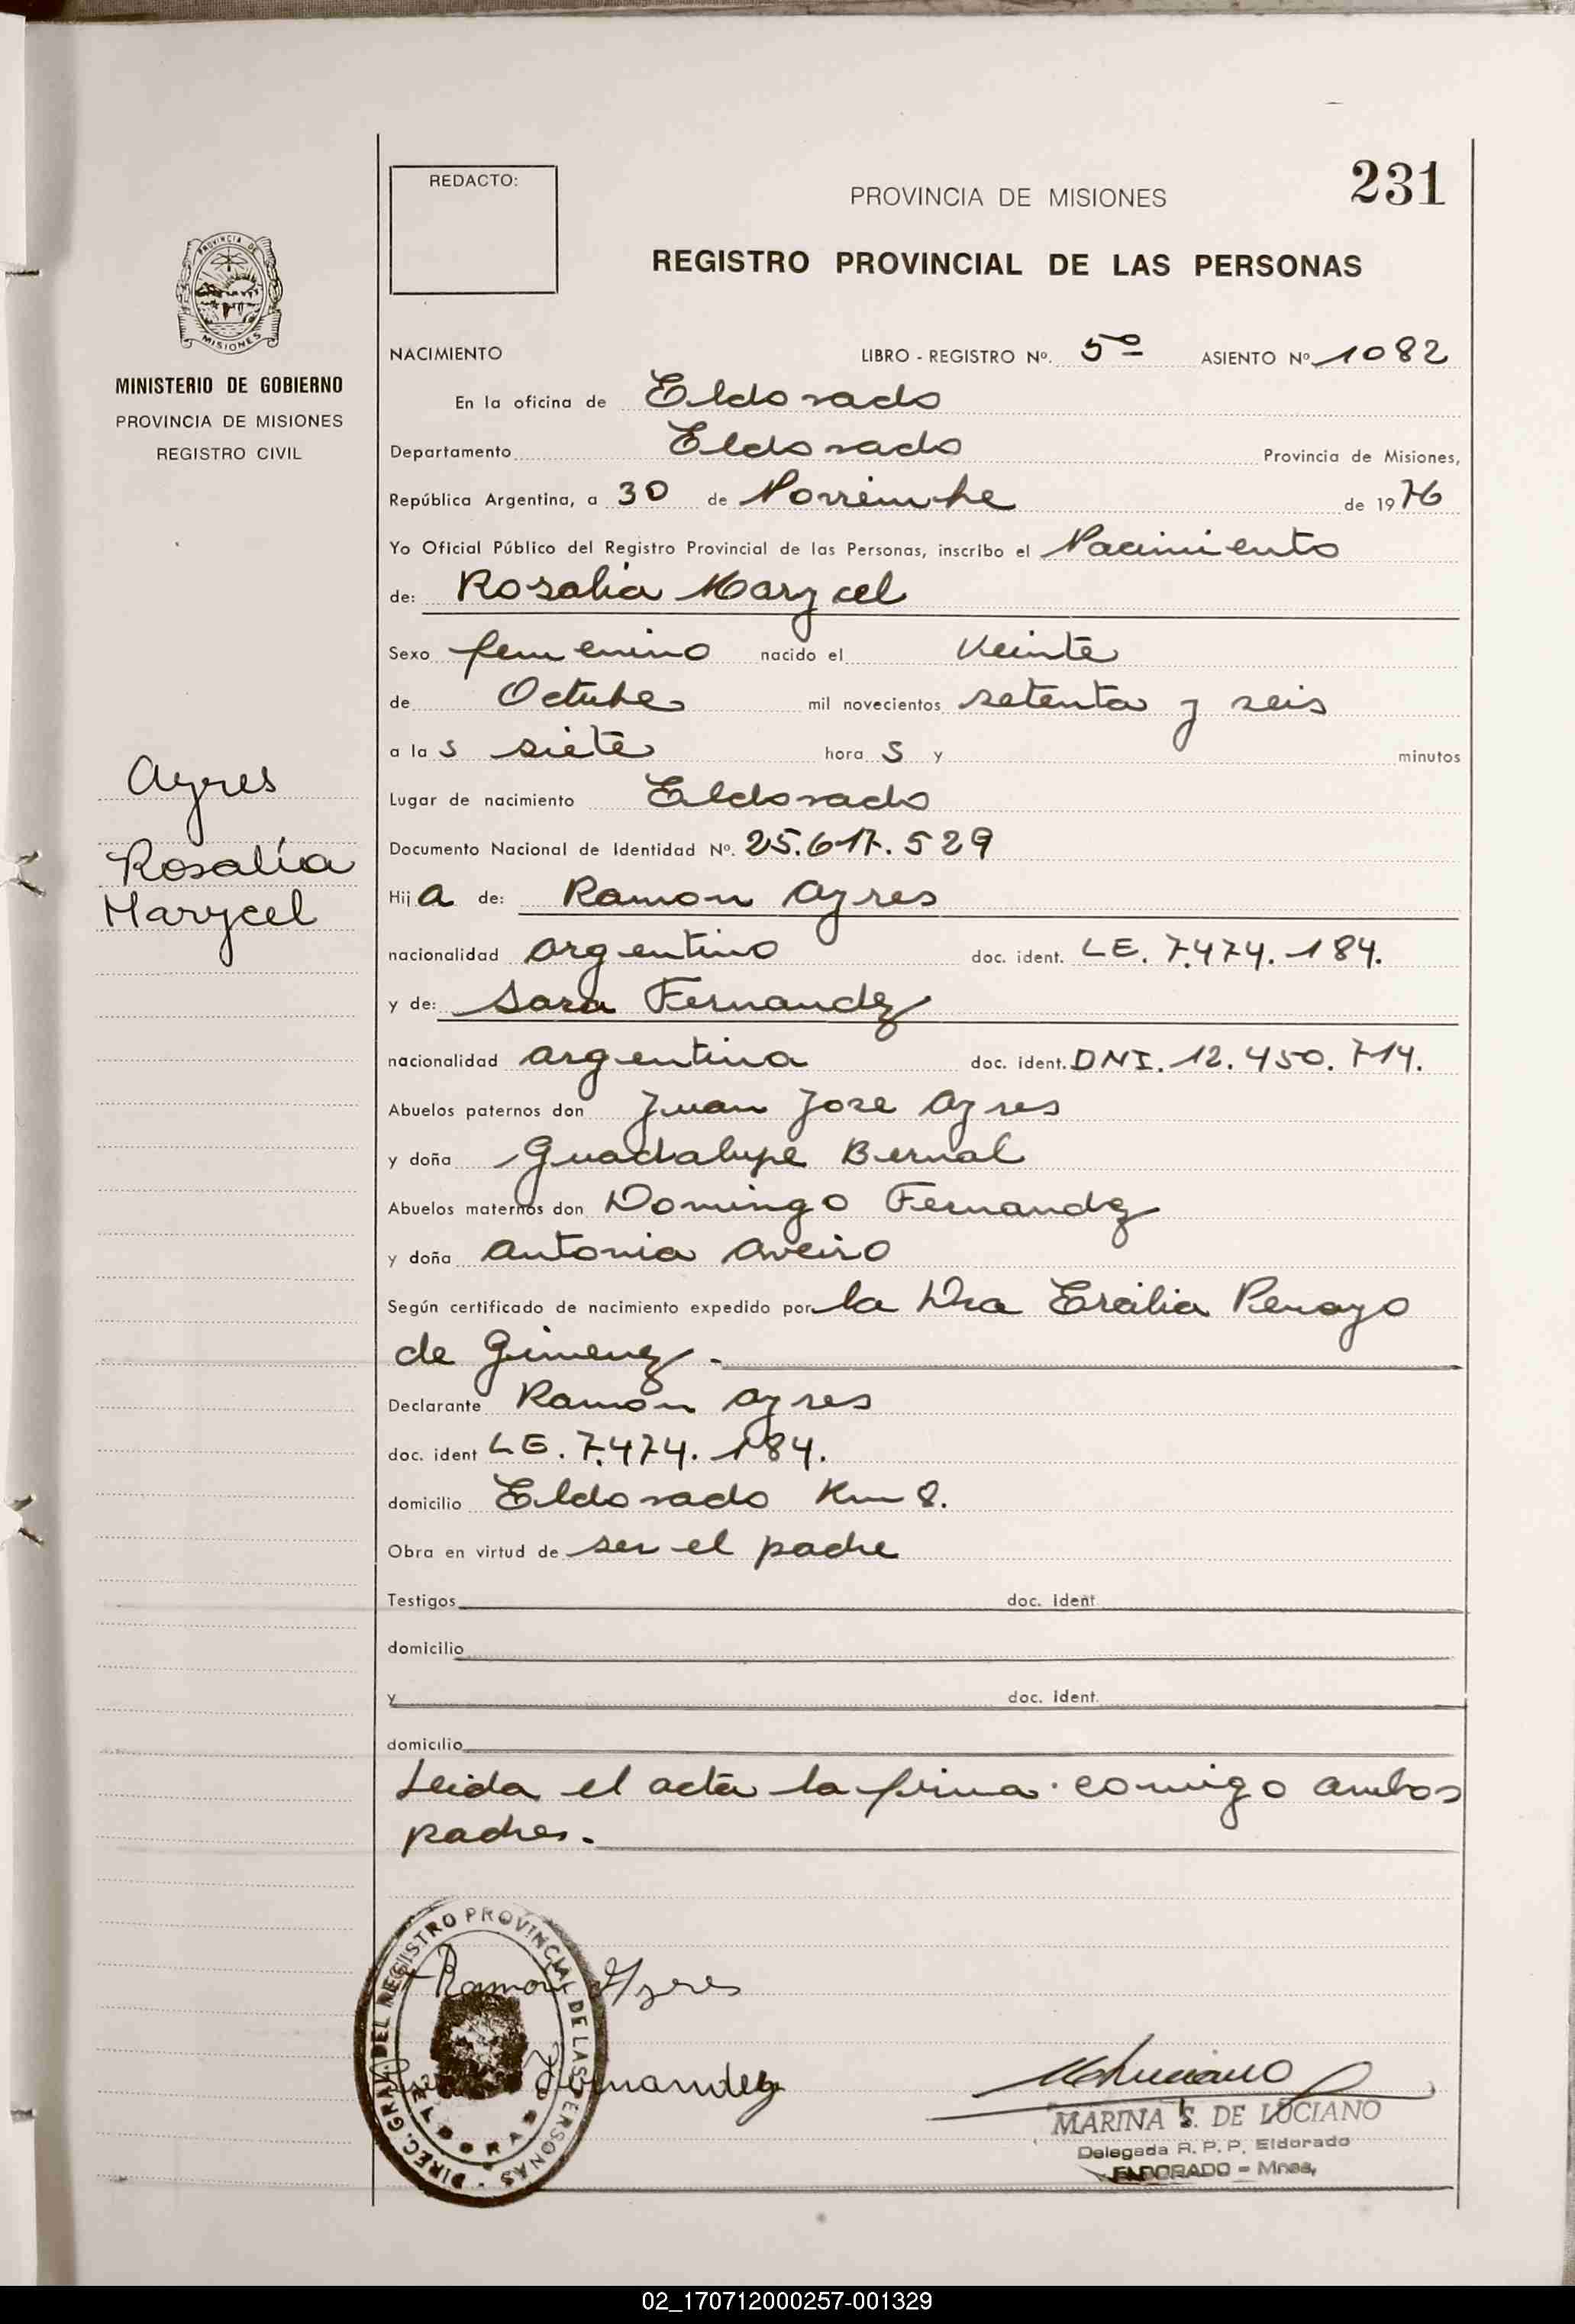 231
REDACTO:
PROVINCIA DE MISIONES
REGISTRO PROVINCIAL DE LAS PERSONAS
PROVINCIA DE
MISIONES
MINISTERIO DE GOBIERNO
PROVINCIA DE MISIONES
REGISTRO CIVIL
NACIMIENTO LIBRO - REGISTRO Nº. 5º ASIENTO Nº 1082
En la oficina de Eldorado
Departamento Eldorado Provincia de Misiones,
República Argentina, a 30 de Noviembre de 1976
Yo Oficial Público del Registro Provincial de las Personas, inscribo el Nacimiento
de: Rosalia Marycel
Sexo femenino nacido el Veinte
de Octubre mil novecientos setenta y seis
a las siete horas y minutos
Ayres
Rosalía
Marycel
Lugar de nacimiento Eldorado
Documento Nacional de Identidad Nº. 25.617.529
Hija de: Ramon Ayres
nacionalidad argentino doc. ident. LE. 7.474.184.
y de: Sara Fernandez
nacionalidad argentina doc. ident. DNI. 12.450.714.
Abuelos paternos don Juan Jose Ayres
y doña Guadalupe Bernal
Abuelos maternos don Domingo Fernandez
y doña Antonia Aveiro
Según certificado de nacimiento expedido por la Dra Ercilia Penayo
de Gimenez.
Declarante Ramón Ayres
doc. ident LE. 7.474.184.
domicilio Eldorado Km 8.
Obra en virtud de ser el padre
Testigos doc. ident
domicilio
y doc. ident.
domicilio
Leida el acta la firma comigo ambos
padres.
DIREC. GRAL. DEL REGISTRO PROVINCIAL DE LAS PERSONAS
ELDORADO
Ramon Ayres
Fernandez
MARINA S. DE LUCIANO
Delegada R. P. P. Eldorado
ELDORADO - Mnes,
02_170712000257-001329